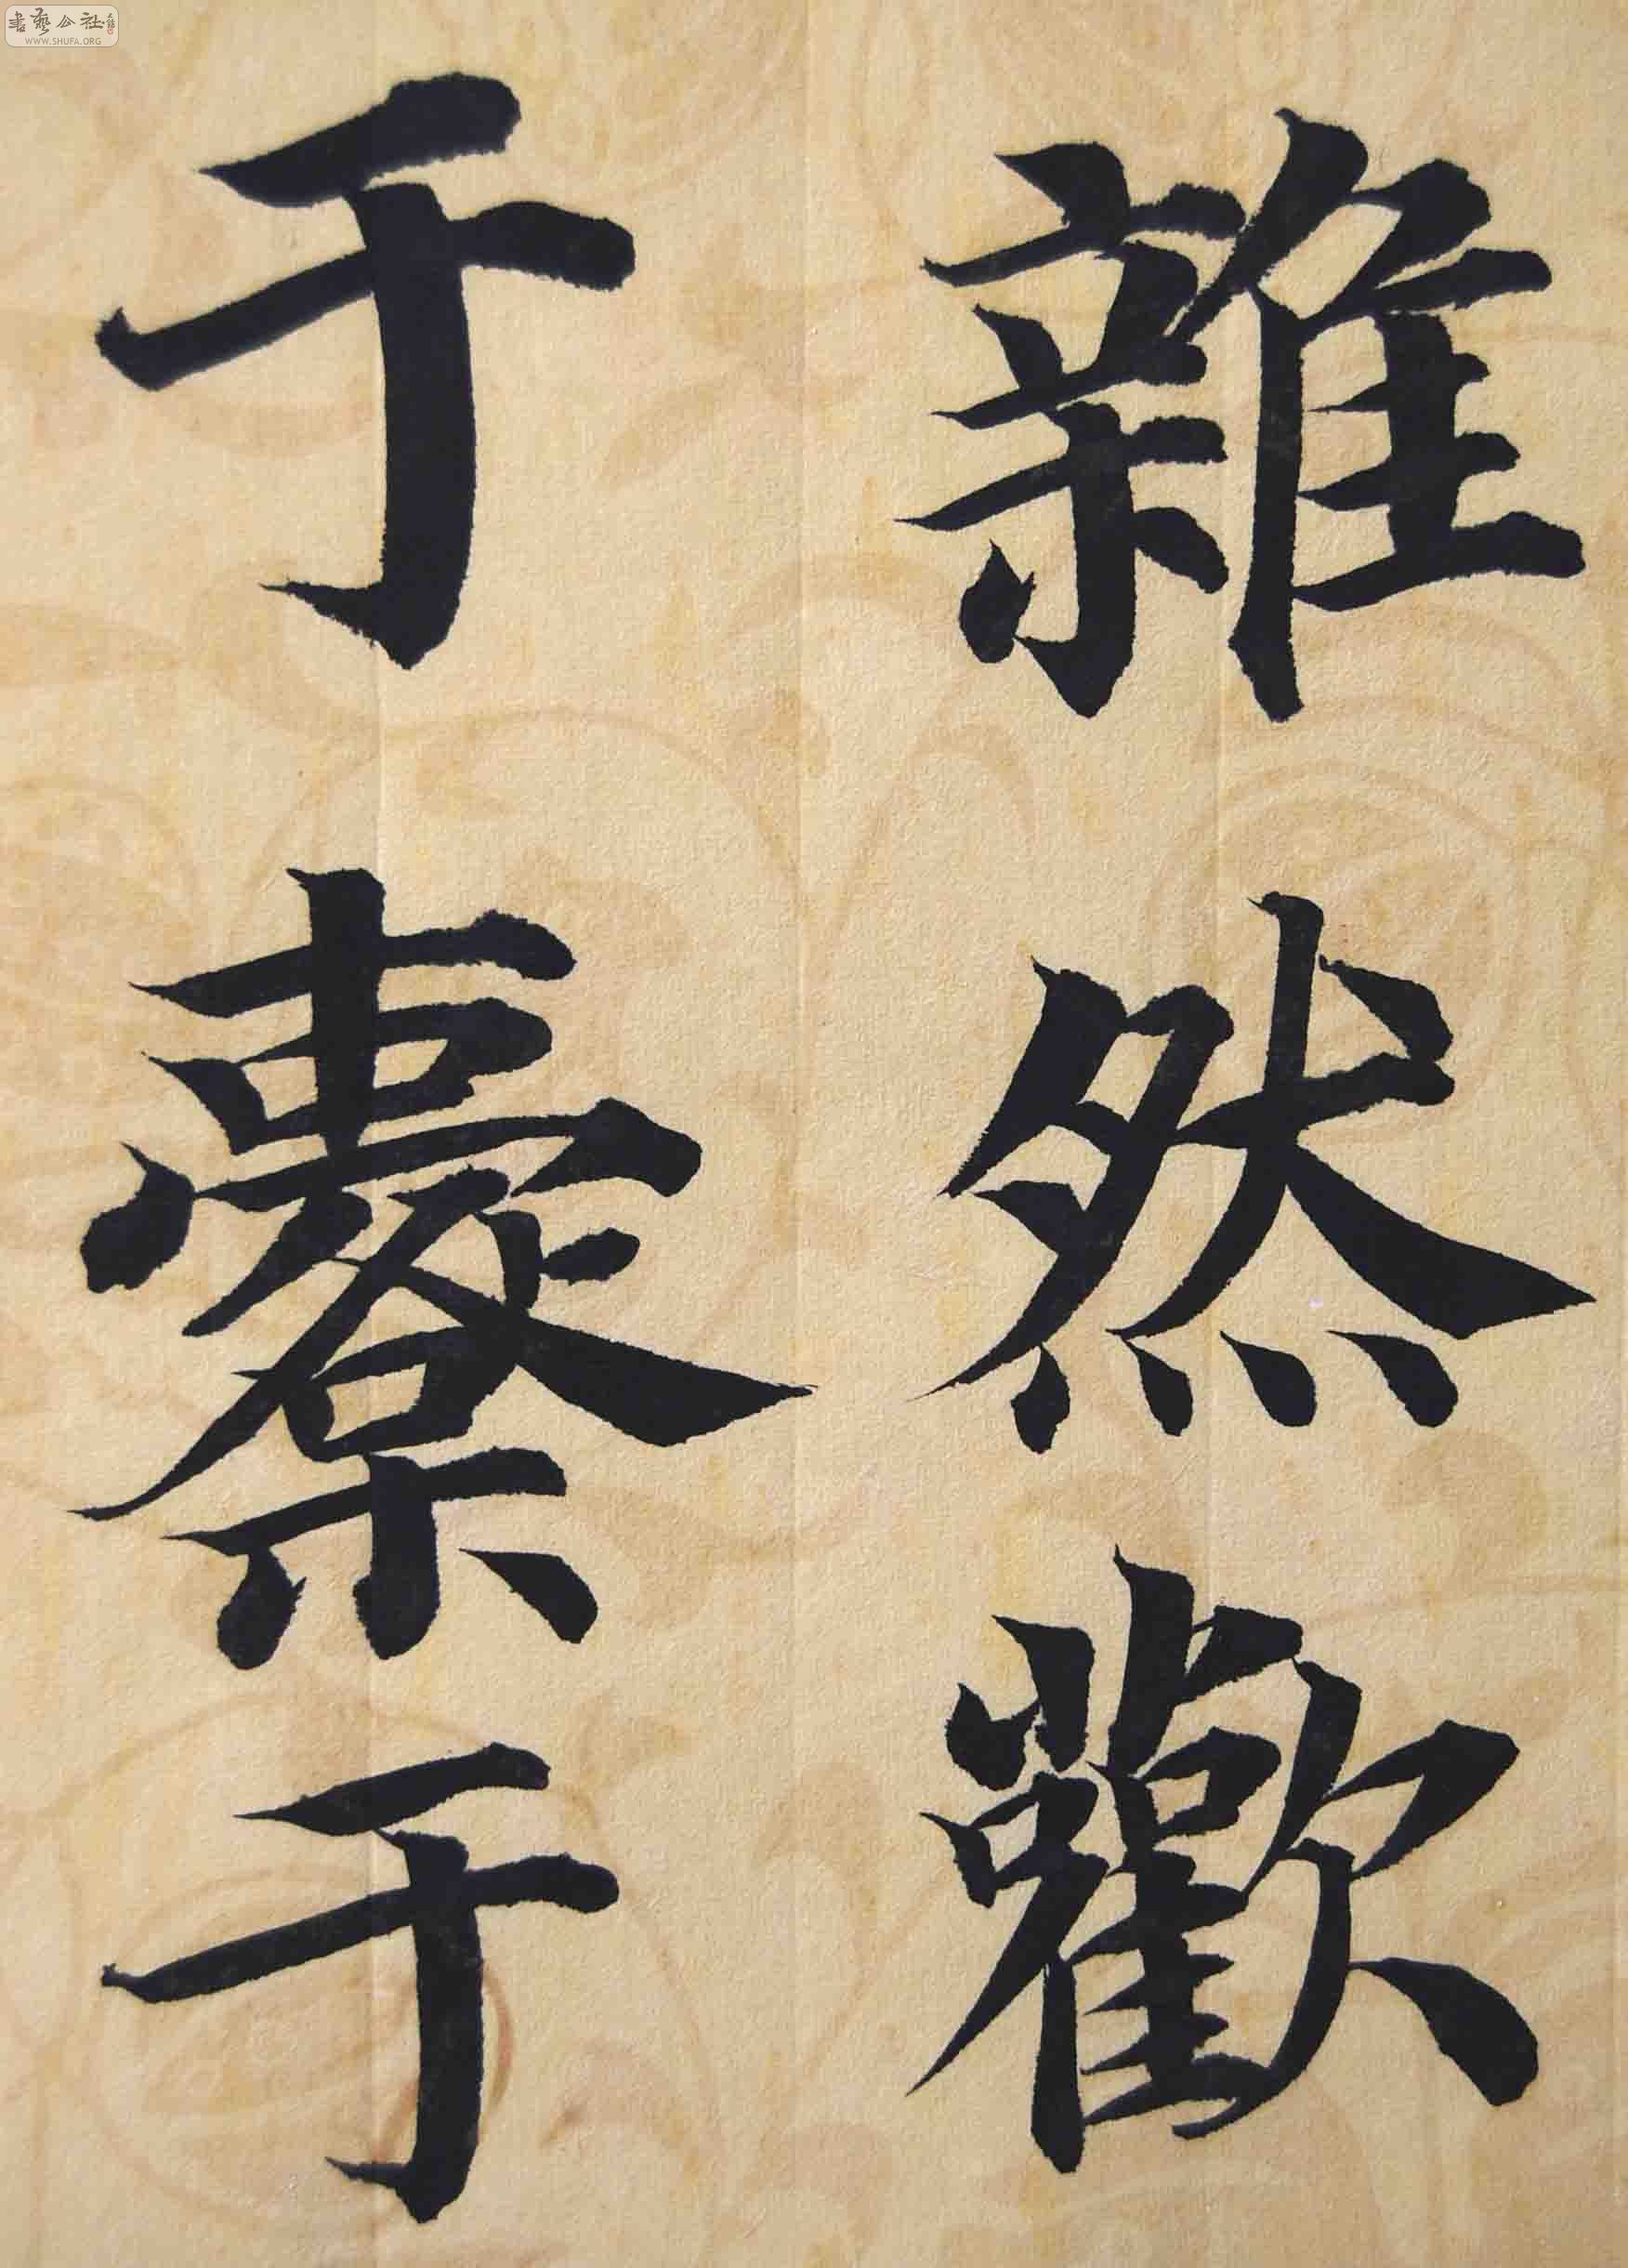 書藝公社
WWW.SHUFA.ORG
雜然歡
于橐于